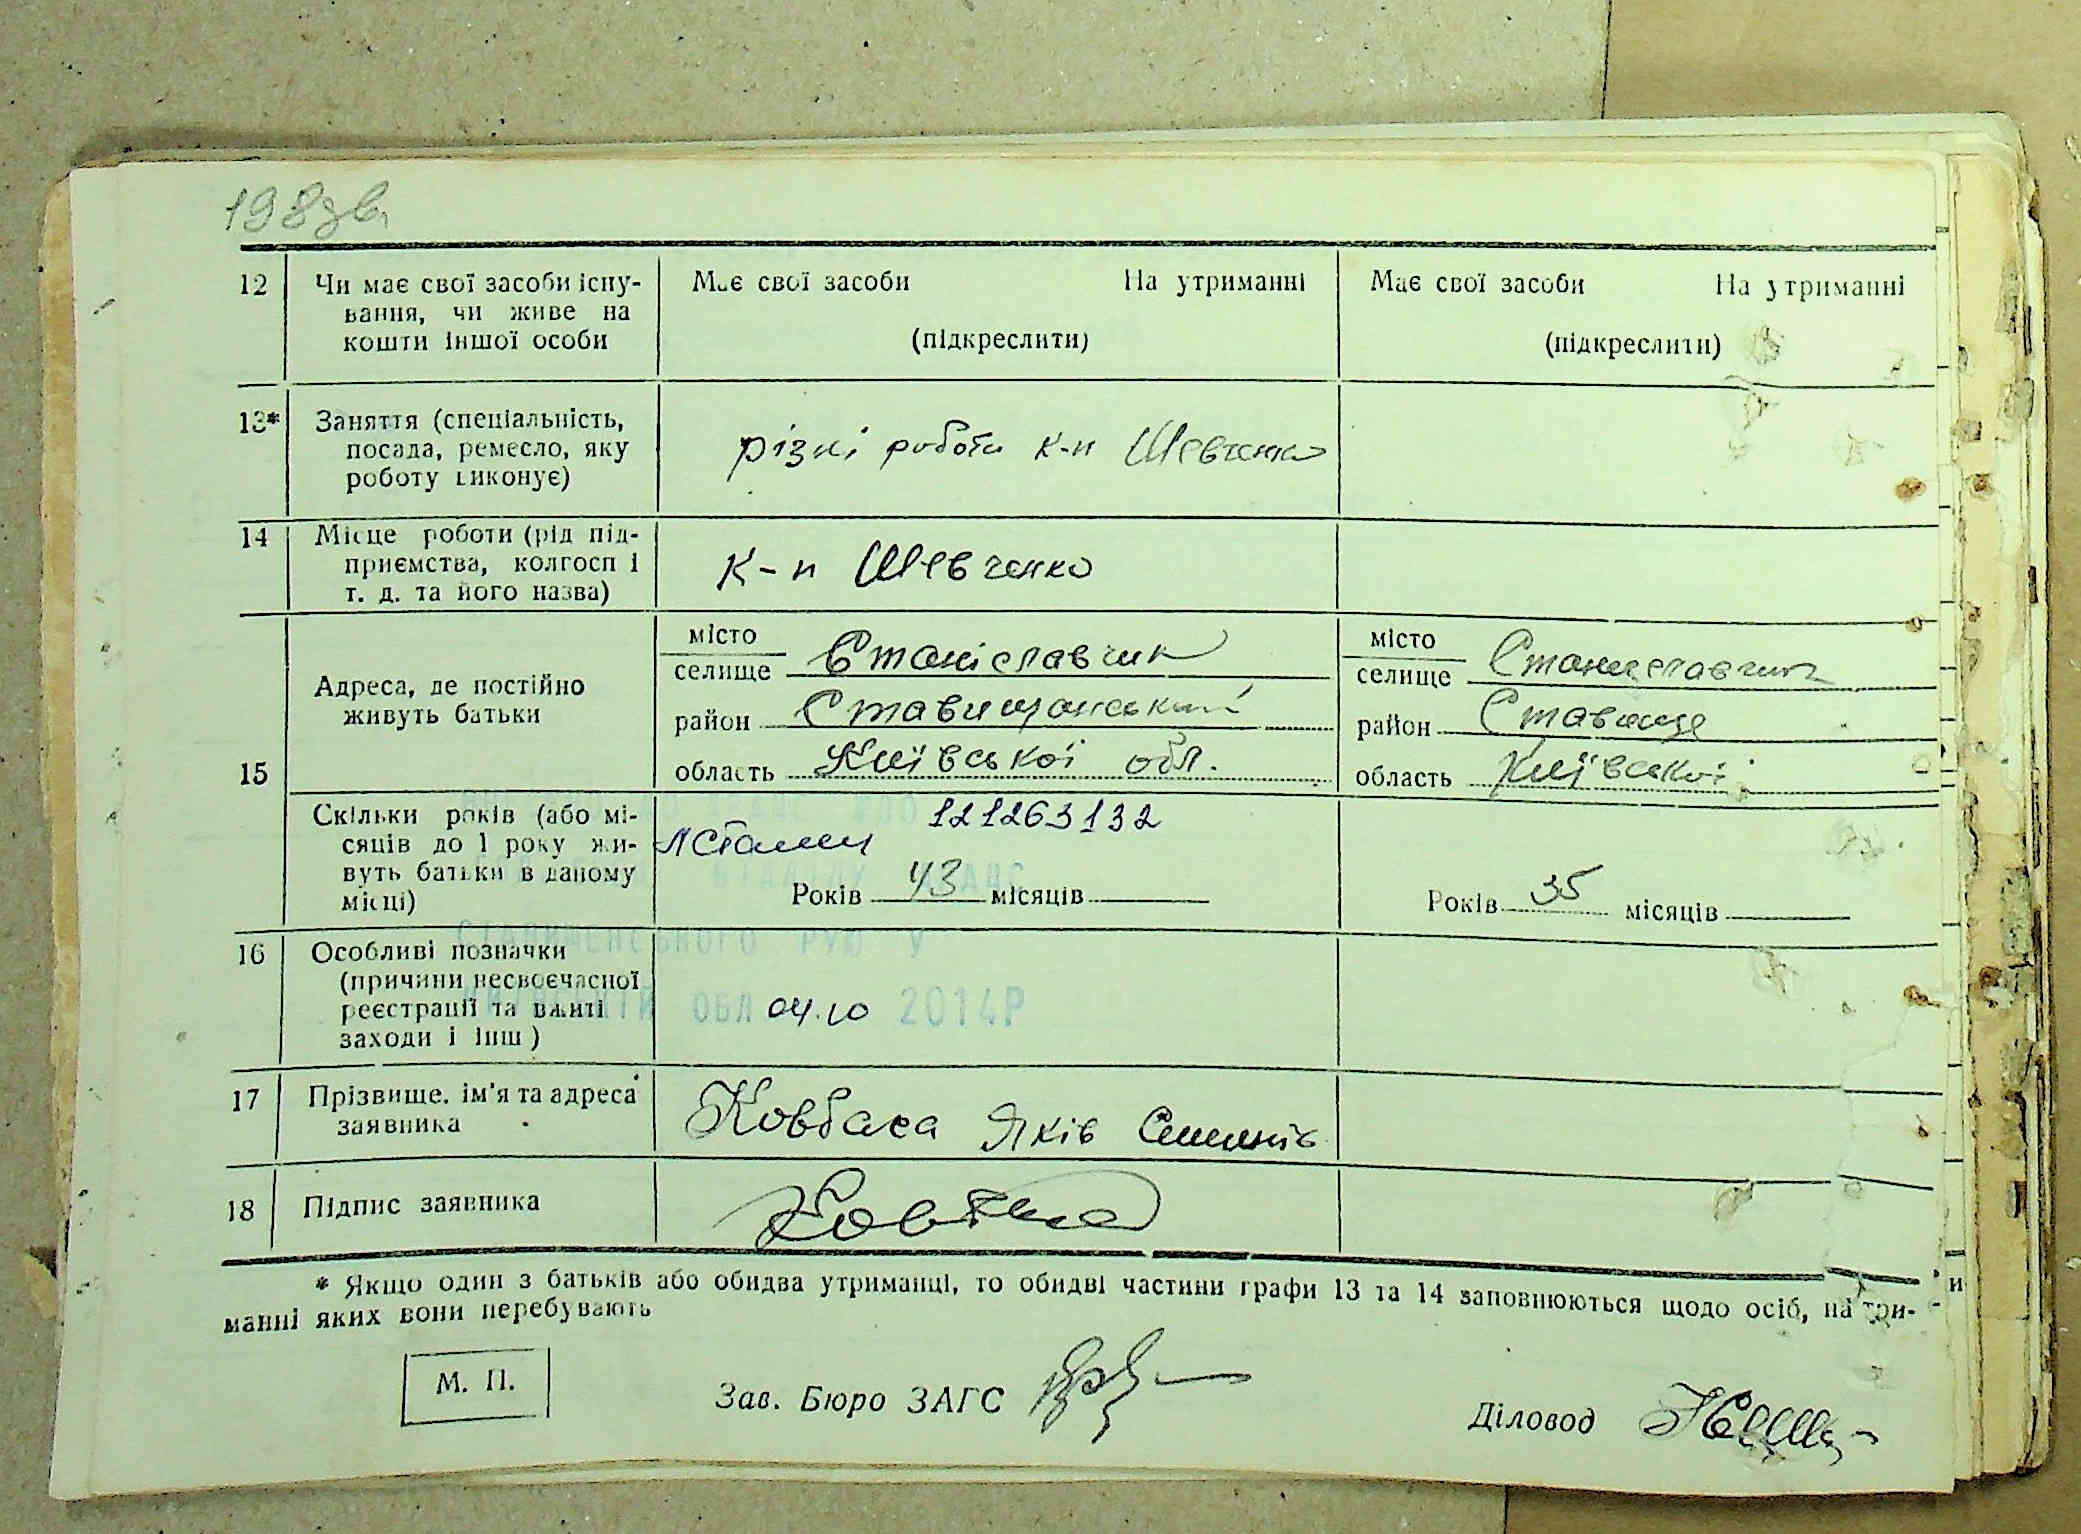 198зв.
12 Чи має свої засоби існу-
вання, чи живе на
кошти іншої особи
Має свої засоби На утриманні
(підкреслити)
Має свої засоби На утриманні
(підкреслити)
13* Заняття (спеціальність,
посада, ремесло, яку
роботу виконує)
різні роботи к-п Шевченко
14 Місце роботи (рід під-
приємства, колгосп і
т. д. та його назва)
к-п Шевченко
15 Адреса, де постійно
живуть батьки
місто
селище Станіславчик
район Ставищанський
область Київської обл.
місто
селище Станиславчик
район Ставище
область Київської
Скільки років (або мі-
сяців до 1 року жи-
вуть батьки в даному
місці)
121263132
Років 43 місяців
Років 35 місяців
16 Особливі позначки
(причини несвоєчасної
реєстрації та вжиті
заходи і інш)
ОБЛ 04.10 2014Р
17 Прізвище, ім'я та адреса
заявника
Ковбаса Яків
18 Підпис заявника
* Якщо один з батьків або обидва утриманці, то обидві частини графи 13 та 14 заповнюються щодо осіб, на три-
манні яких вони перебувають
М. П.
Зав. Бюро ЗАГС
Діловод